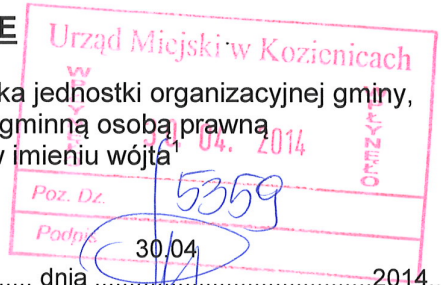 E
Urząd Miejski w Kozienicach
ka jednostki organizacyjnej gminy,
gminną osobą prawną
WPŁYNĘŁO 30. 04. 2014 WPŁYNĘŁO
imieniu wójta¹
Poz. Dz. 5359
Podpis
30.04
..... dnia ..........................................2014